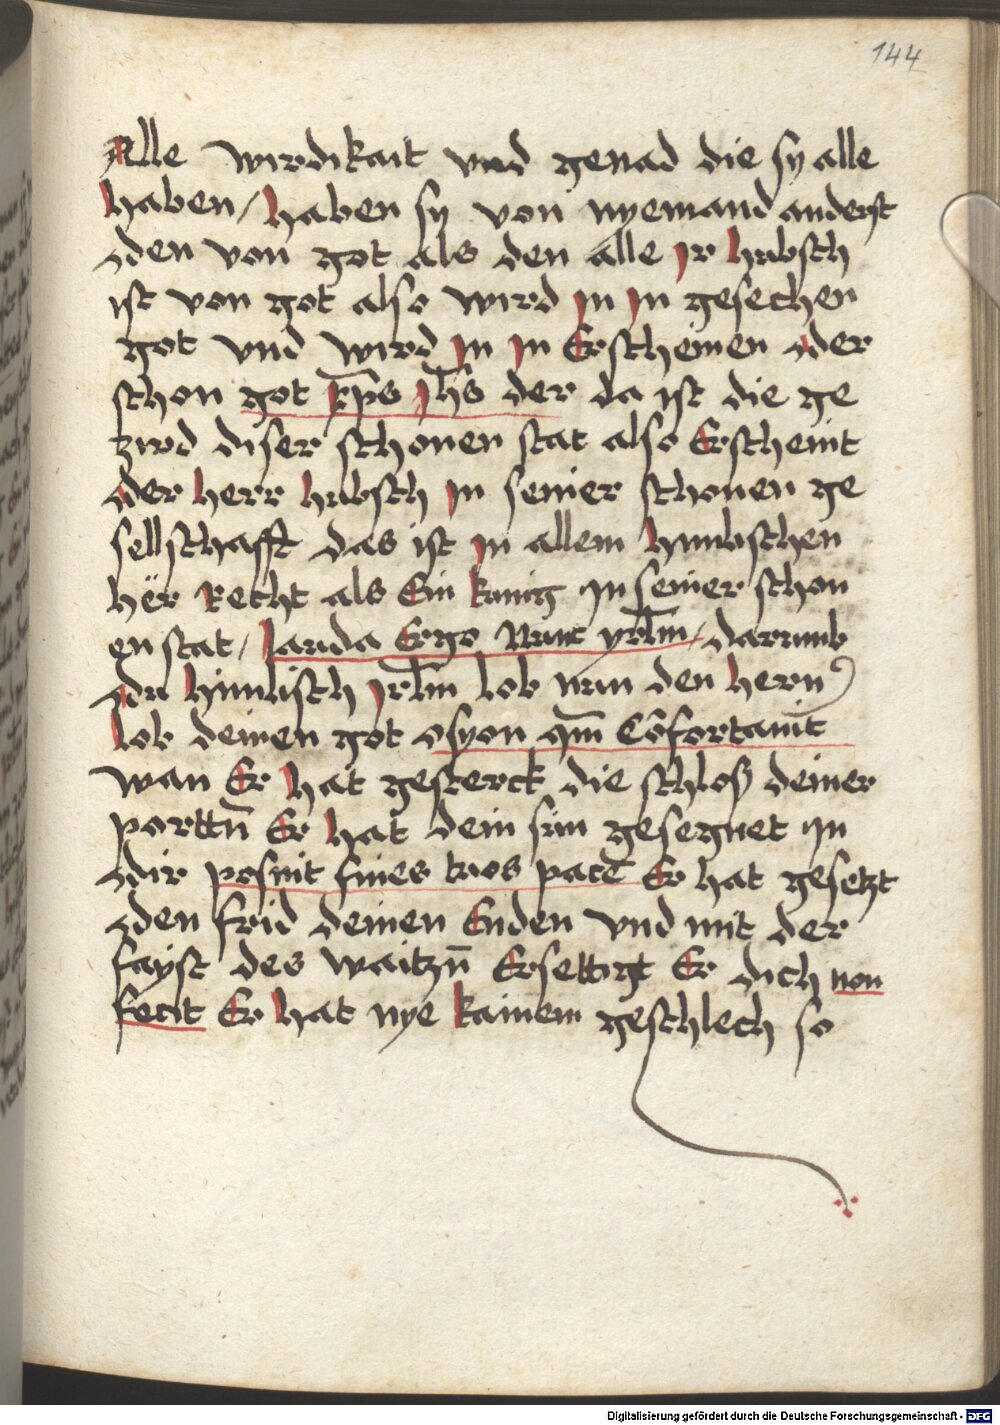 144
Alle wirdikait vnd genad die sy alle
haben / haben sy von nyemand anderst
den von got als den alle Ir hubsch
ist von got also wird In In gesechen
got vnd wird In In Erscheinen der
schon got xp̄s Jh̄s der da ist die ge
zird diser schonen stat also Erscheint
der herr hubsch In seiner schonen ge
sellschafft das ist In allem himbschen
hër Recht als Ein kunig In seiner schon
en stat / lauda Ergo Nunc yrl̄m / darumb
du himlisch Jrl̄m lob nun den hern
lob deinen got osyon qm̄ Cōfortauit
wan Er hat gesterck die schloß deiner
porttn̄ Er hat dein sun gesegnet In
dir posuit fines tuos pacē Er hat gesetzt
den frid deinen Enden vnd mit der
fayst des waitzn̄ Ersettigt Er dich non
fecit Er hat nye kainem geschlech so
Digitalisierung gefördert durch die Deutsche Forschungsgemeinschaft - DFG